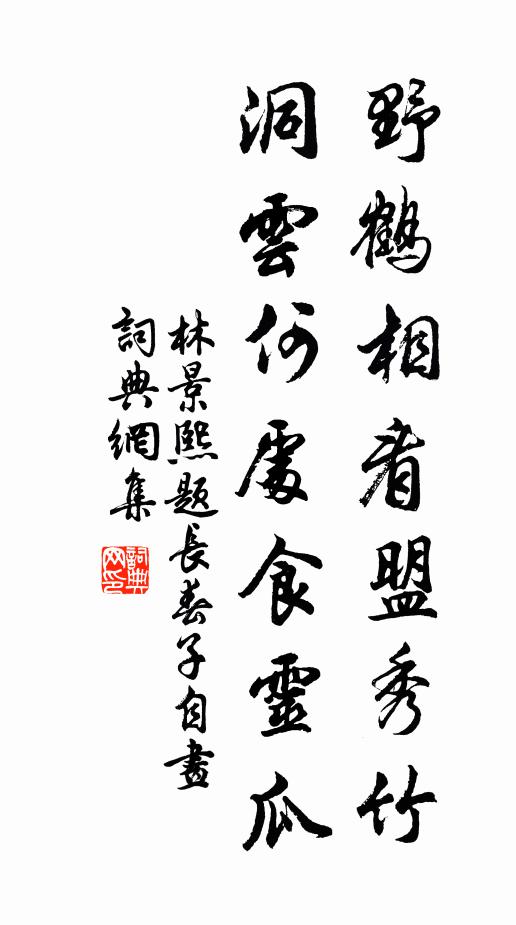 野鶴相看盟秀竹
洞雲何處食靈瓜
林景熙題長春子自畫
詞典網集
詞典網印